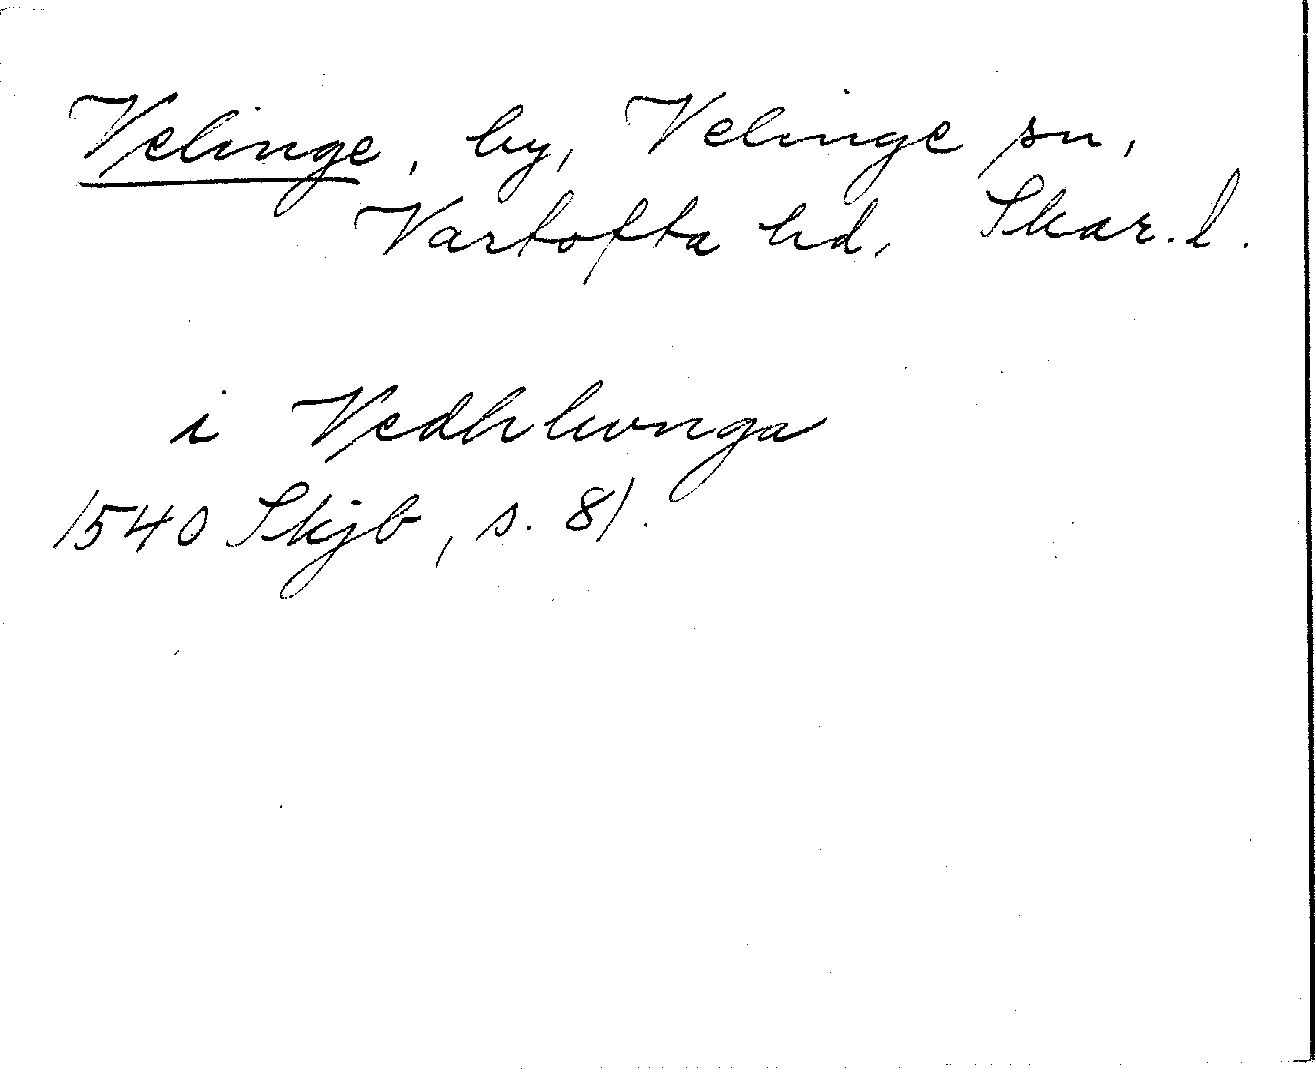 Velinge, by, Velinge sn,
Vartofta hd, Skar. l.
i Vedhlunga
1540 Skjb, s. 81.